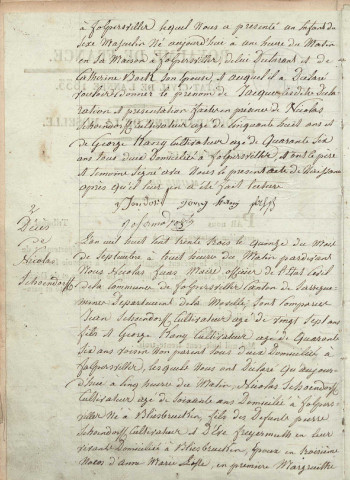 à folpersviller lequel Nous a presenté un Enfant du
Sexe Masculin Né aujourd'hui à une heure du Matin
en Sa Maison à folpersviller, de lui Declarant et de
Catherine Bock Son Epouse, et auquel il a Declaré
vouloir donner le prenom de Jacque lesdite Decla-
ration et presentation faites en presence de Nicolas
Schoendorff Cultivateur agé de Cinquante huit ans et
de George Hany Cultivateur agé de Quarante Six
ans tous deux Domicilié à folpersviller, et ont le pere
et temoins Signé avec Nous le present acte de Naissance
après qu'il leur en a été fait lecture
2
Décés
de
Nicolas
Schoendorff
L'an mil huit Cent trente trois le quinze du Mois
de Septembre à huit heures du Matin pardevant
Nous Nicolas Maire officier de l'Etat Civil
de la Commune de folpersviller Canton de Sarregue-
mine Departement de la Moselle, Sont Comparus
Jean Schoendorff Cultivateur agé de vingt Sept ans
fils et George Hany Cultivateur agé de Quarante
Six ans voisin Non parent tous deux Domiciliés à
folpersviller, lesquels Nous ont Declaré Qu'aujour-
d'hui a Cinq heures du Matin, Nicolas Schoendorff
Cultivateur agé de Soixante ans Domicilié à folper-
viller Né à Bliesbruchen, fils des Defunts pierre
Schoendorff Cultivateur et d'Eve freyermuth en leur
vivant Domiciliés à Bliesbruchen, Epoux en troisieme
Noces d'anne Marie en premiere Marguerithe